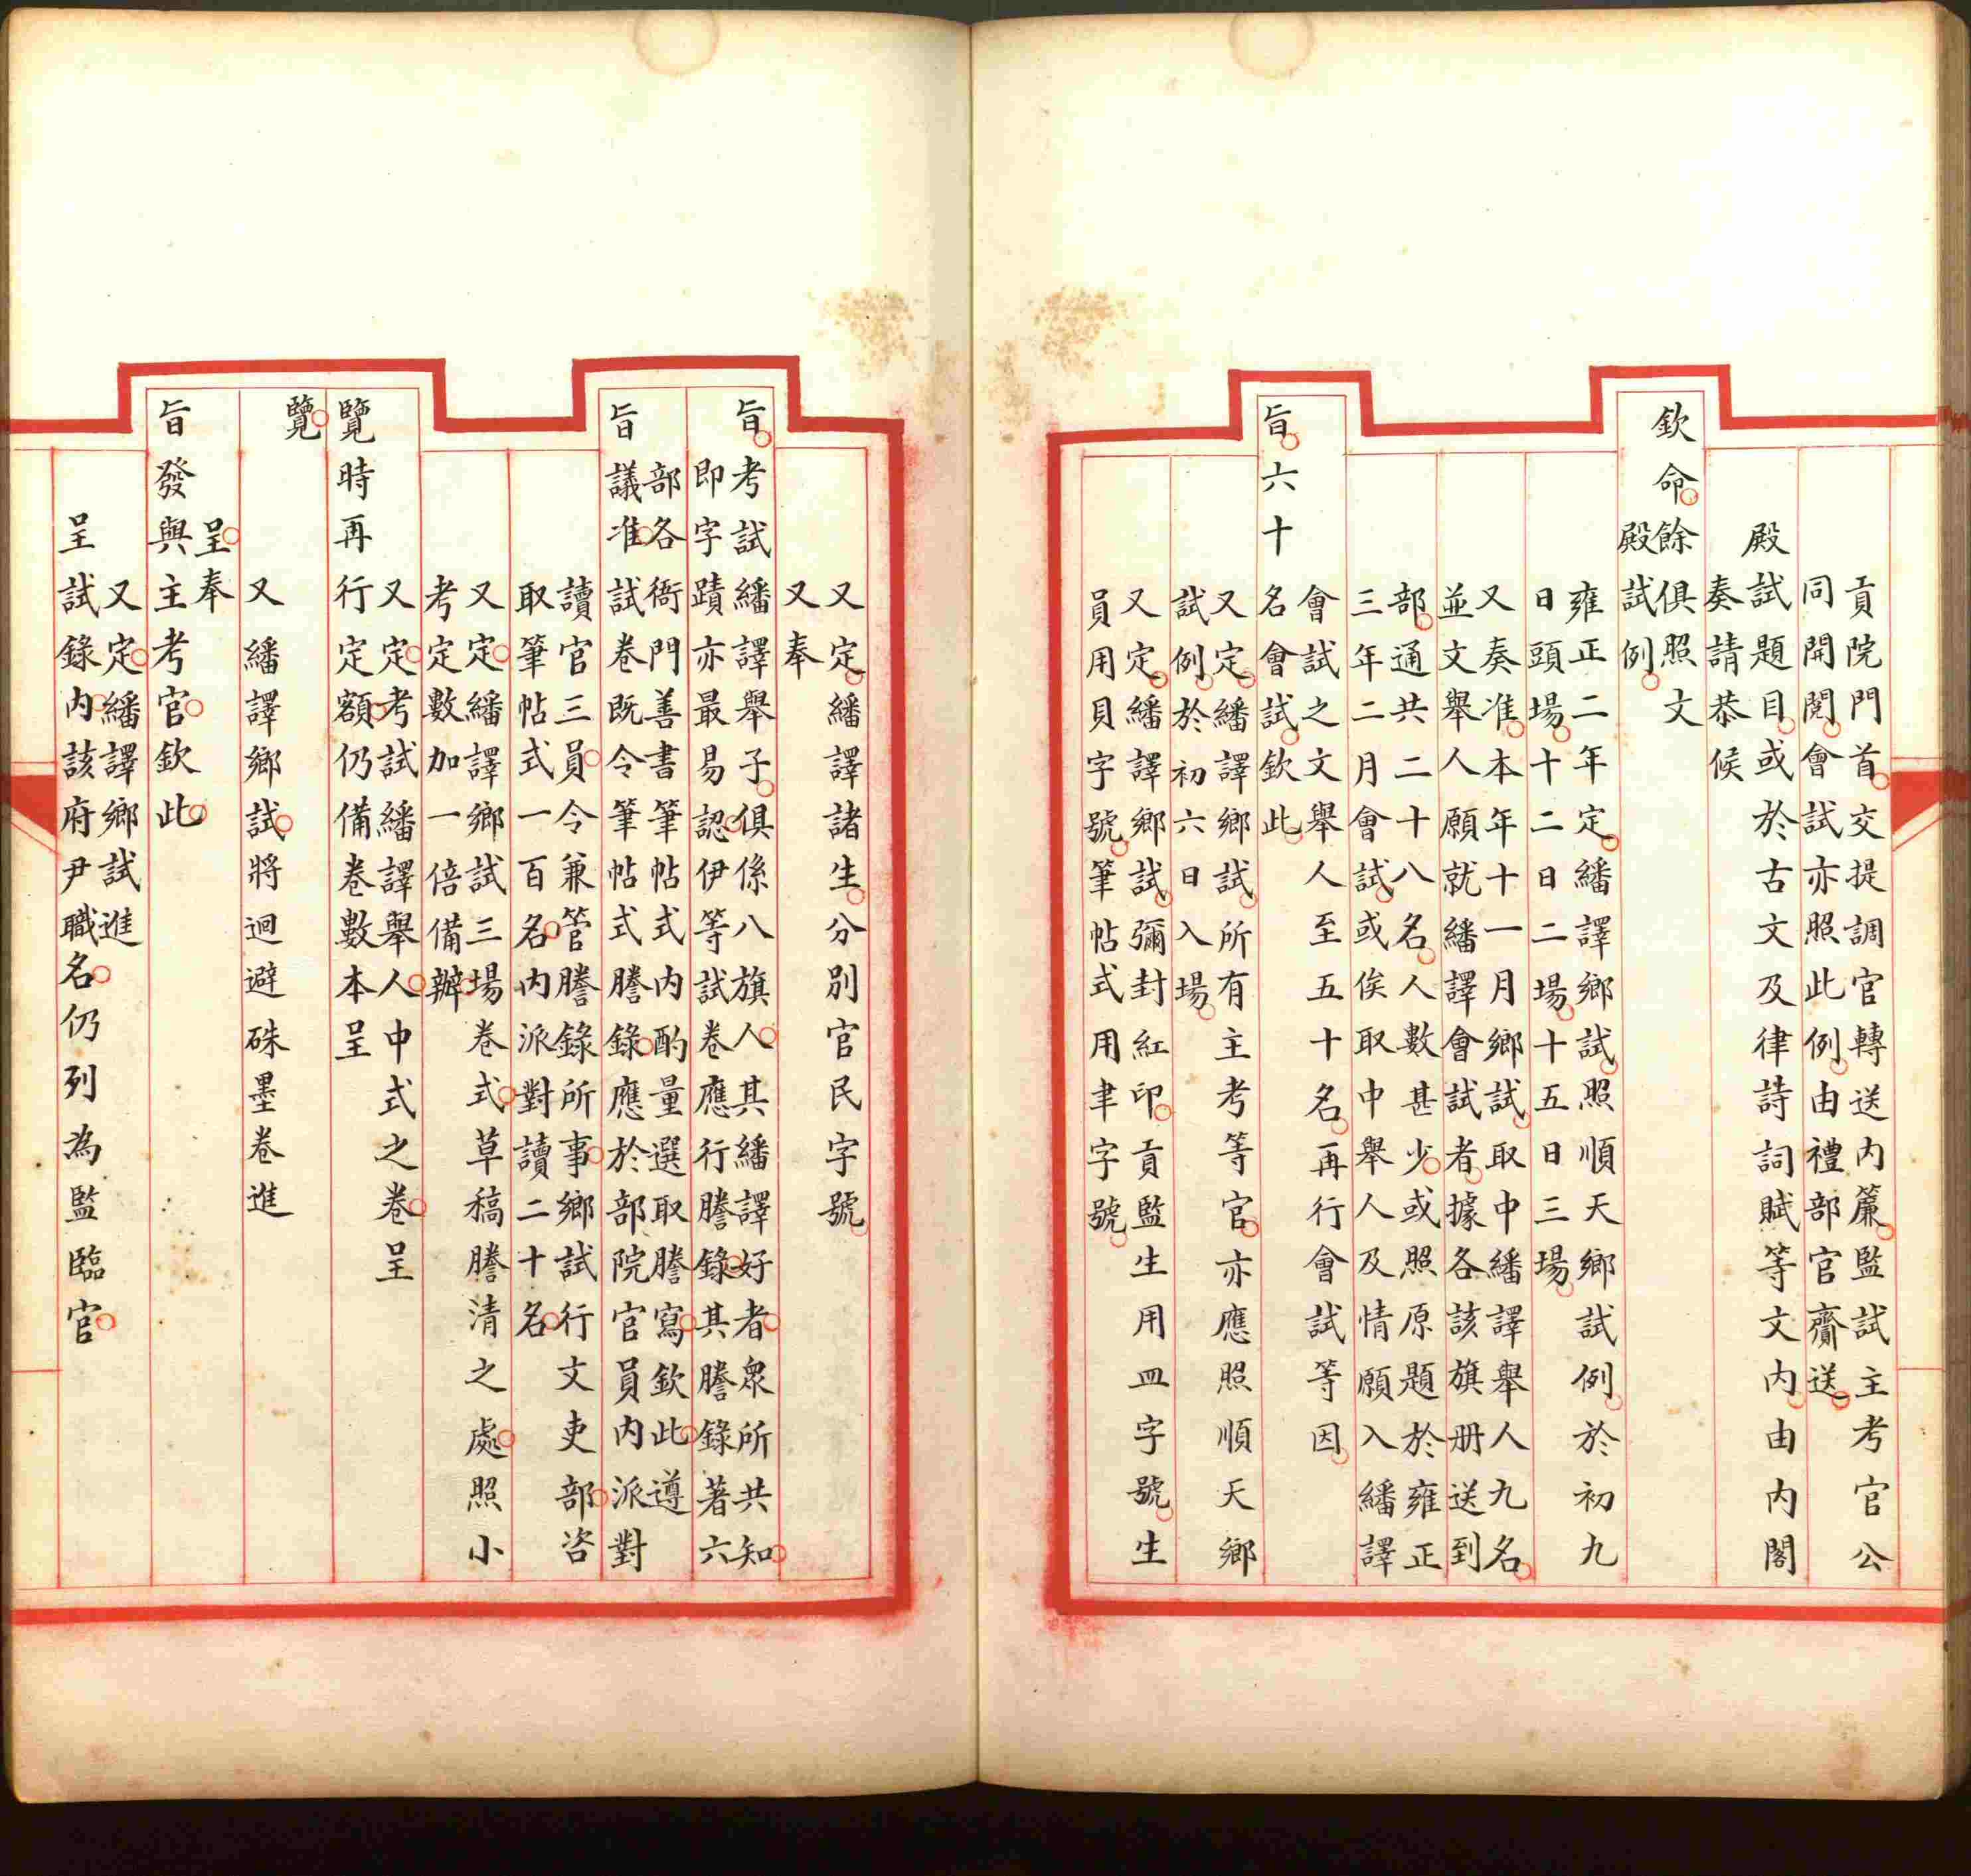 貢院門首交提調官轉送内簾監試主考官公
同開閱會試亦照此例由禮部官齎送
殿試題目或於古文及律詩詞賦等文内由内閣
奏請恭候
欽命餘俱照文
殿試例
雍正二年定繙譯鄉試照順天鄉試例於初九
日頭場十二日二場十五日三場
又奏准本年十一月鄉試取中繙譯舉人九名
並文舉人願就繙譯會試者據各該旗册送到
部通共二十八名人數甚少或照原題於雍正
三年二月會試或俟取中舉人及情願入繙譯
會試之文舉人至五十名再行會試等因
旨六十名會試欽此
又定繙譯鄉試所有主考等官亦應照順天鄉
試例於初六日入場
又定繙譯鄉試彌封紅印貢監生用皿字號生
員用貝字號筆帖式用聿字號
又定繙譯諸生分別官民字號
又奉
旨考試繙譯舉子俱係八旗人其繙譯好者衆所共知
即字蹟亦最易認伊等試卷應行謄錄其謄錄著六
部各衙門善書筆帖式内酌量選取謄寫欽此遵
旨議准試卷既令筆帖式謄錄應於部院官員内派對
讀官三員令兼管謄錄所事鄉試行文吏部咨
取筆帖式一百名内派對讀二十名
又定繙譯鄉試三場卷式草稿謄清之處照小
考定數加一倍備辦
又定考試繙譯舉人中式之卷呈
覽時再行定額仍備卷數本呈
覽
又繙譯鄉試將迴避硃墨卷進
呈奉
旨發與主考官欽此
又定繙譯鄉試進
呈試錄内該府尹職名仍列為監臨官